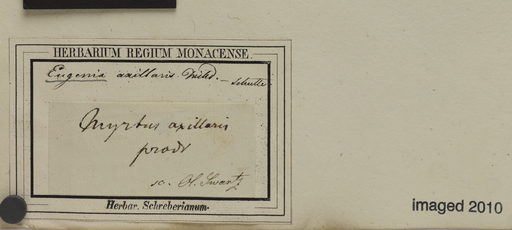 HERBARIUM REGIUM MONACENSE
Eugenia axillaris Willd. – Schulte.
Myrtus axillaris
prodr
sc. Ol. Swartz
Herbar. Schreberianum.
imaged 2010